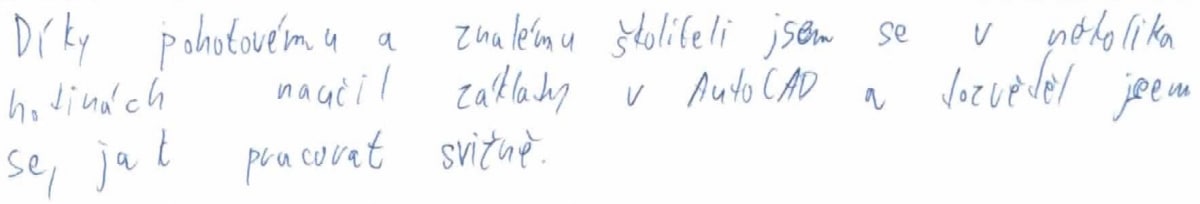 Díky pohotovému a znalému školiteli jsem se v několika
hodinách naučil základy v AutoCAD a dozvěděl jsem
se, jak pracovat svižně.